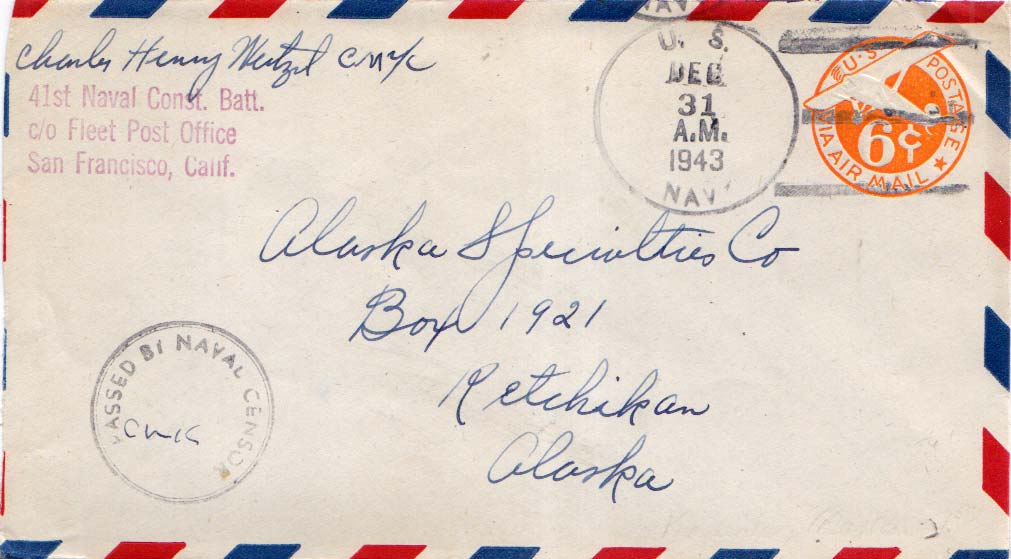 Charles Henry
41st Naval Const. Batt.
c/o Fleet Post Office
San Francisco, Calif.
NAVY
U. S.
DEC
31
A.M.
1943
NAVY
U·S· POSTAGE
6¢
VIA AIR MAIL
Alaska Specialties Co
Box 1921
Ketchikan
Alaska
PASSED BY NAVAL CENSOR